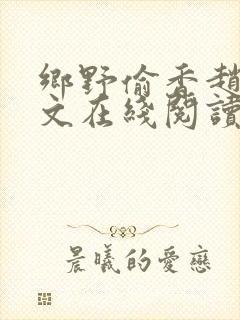 鄉野偷香趙
文在綫閱讀
晨曦的愛戀